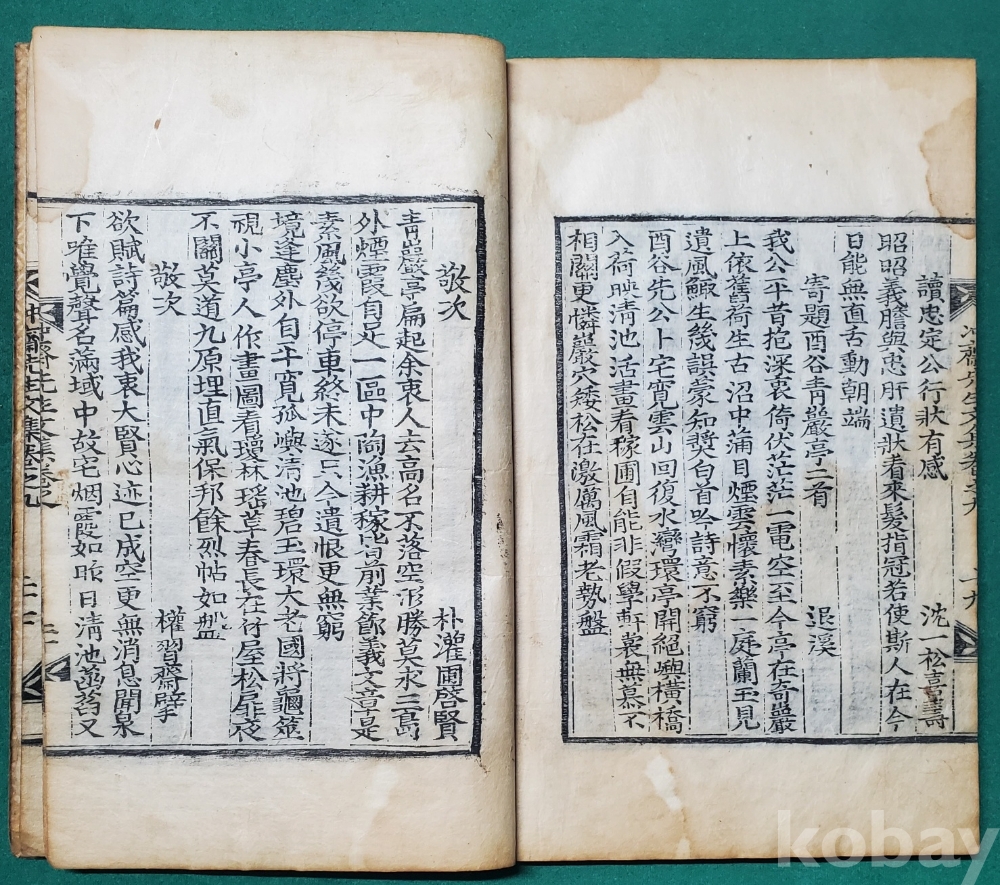 讀忠定公行狀有感 沈一松喜壽
昭昭義膽與忠肝遺狀看來髮指冠若使斯人在今
日能無直舌動朝端
寄題酉谷青巖亭二首 退溪
我公平昔抱深衷倚伏茫茫一電空至今亭在奇巖
上依舊荷生古沼中滿目煙雲懷素樂一庭蘭玉見
遺風鯫生幾誤蒙知奬白首吟詩意不窮
酉谷先公卜宅寬雲山回復水灣環亭開絕嶼橫橋
入荷映淸池活畫看稼圃自能非假學軒裳無慕不
相關更憐巖穴矮松在激厲風霜老勢盤
敬次 朴灌圃啓賢
靑巖亭扁起余衷人云高名不落空形勝莫求三島
外煙霞自足一區中陶漁耕稼皆前業節義文章是
素風幾欲停車終未遂只今遺恨更無窮
境逢塵外自平寬孤嶼淸池碧玉環大老國將龜筮
視小亭人作畫圖看瓊林瑤草春長在竹屋松扉夜
不關莫道九原埋直氣保邦餘烈帖如盤
敬次 權習齋擘
欲賦詩篇感我衷大賢心迹已成空更無消息聞泉
下唯覺聲名滿域中故宅烟霞如昨日淸池菡萏又
冲齋先生文集卷之九
kobay